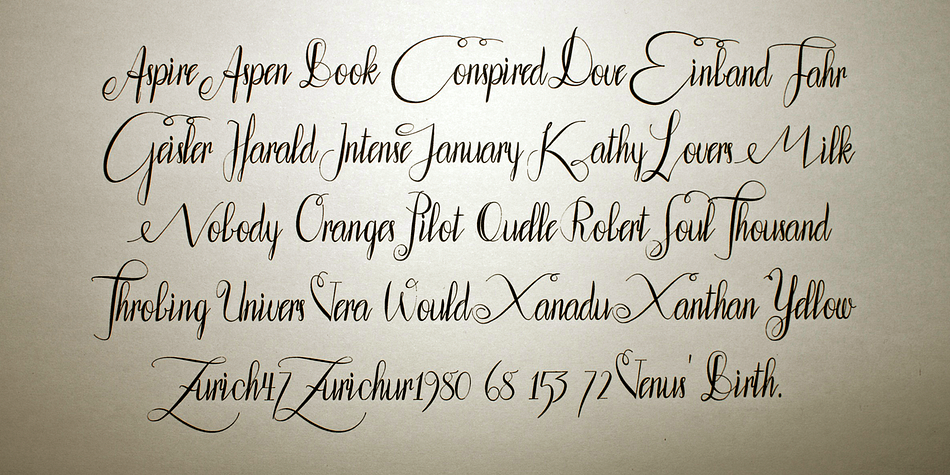 Aspire Aspen Book Conspired Dove Einband Fahr
Geisler Harald Intense January Kathy Lovers Milk
Nobody Oranges Pilot Quelle Robert Soul Thousand
Throbing Univers Vera Would Xanadu Xanthan Yellow
Zurich 47 Zurichur 1980 68 153 72 Venus' Birth.